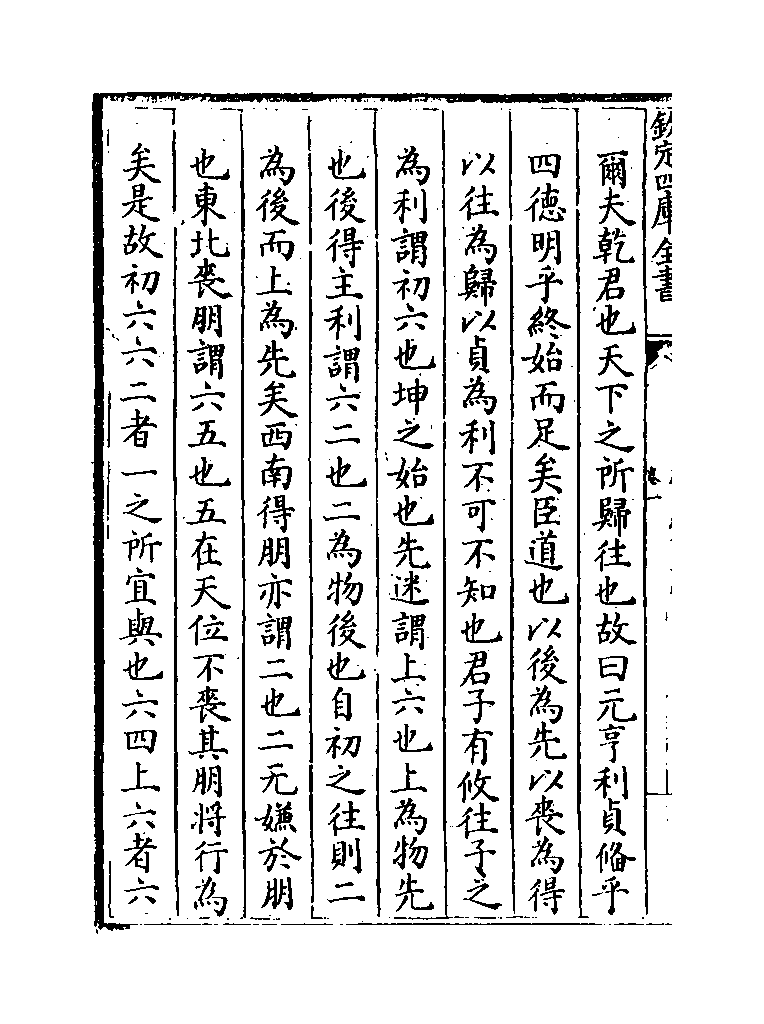 欽定四庫全書
卷一
爾夫乾君也天下之所歸往也故曰元亨利貞備乎
四德明乎終始而足矣臣道也以後為先以喪為得
以往為歸以貞為利不可不知也君子有攸往子之
為利謂初六也坤之始也先迷謂上六也上為物先
也後得主利謂六二也二為物後也自初之往則二
為後而上為先矣西南得朋亦謂二也二无嫌於朋
也東北喪朋謂六五也五在天位不喪其朋將行為
矣是故初六六二者一之所宜與也六四上六者六